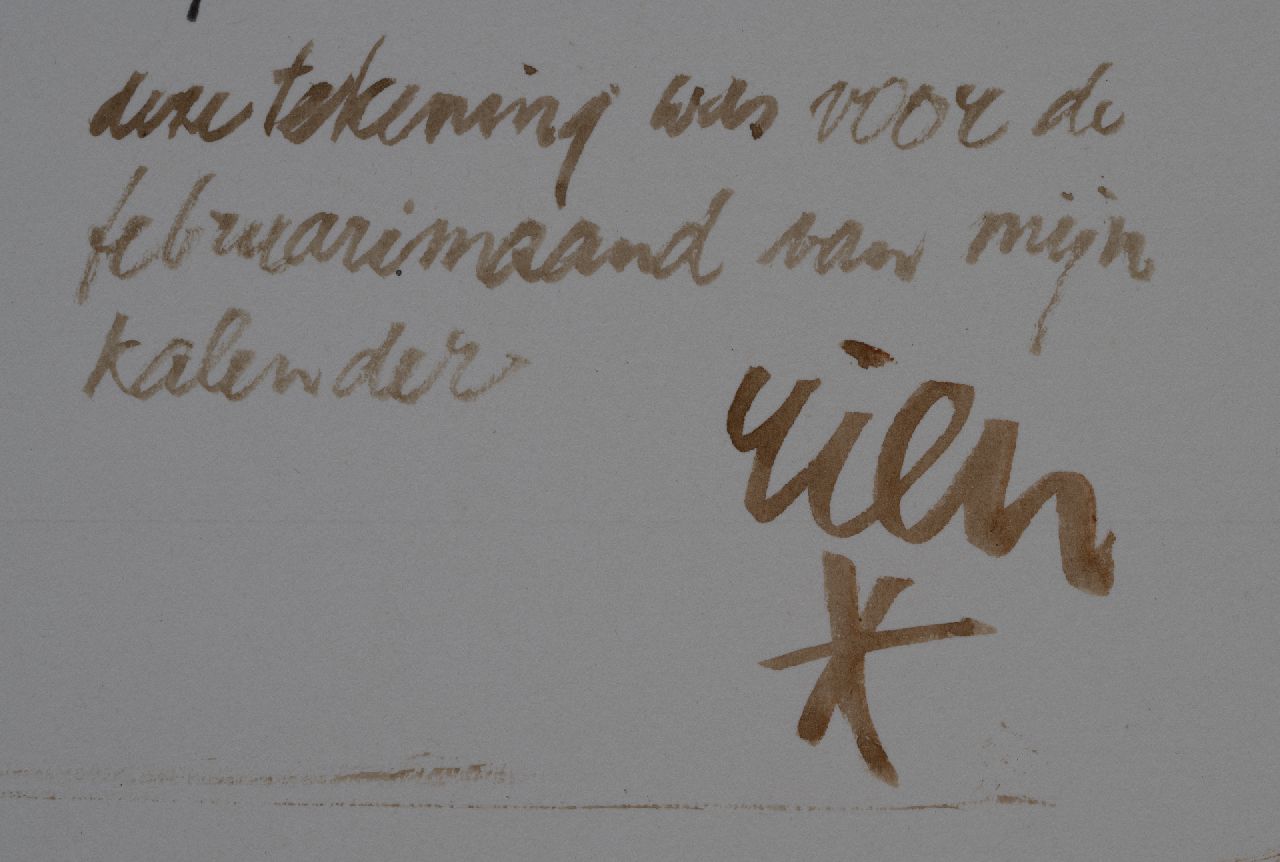 deze tekening was voor de
februarimaand van mijn
kalender
rien